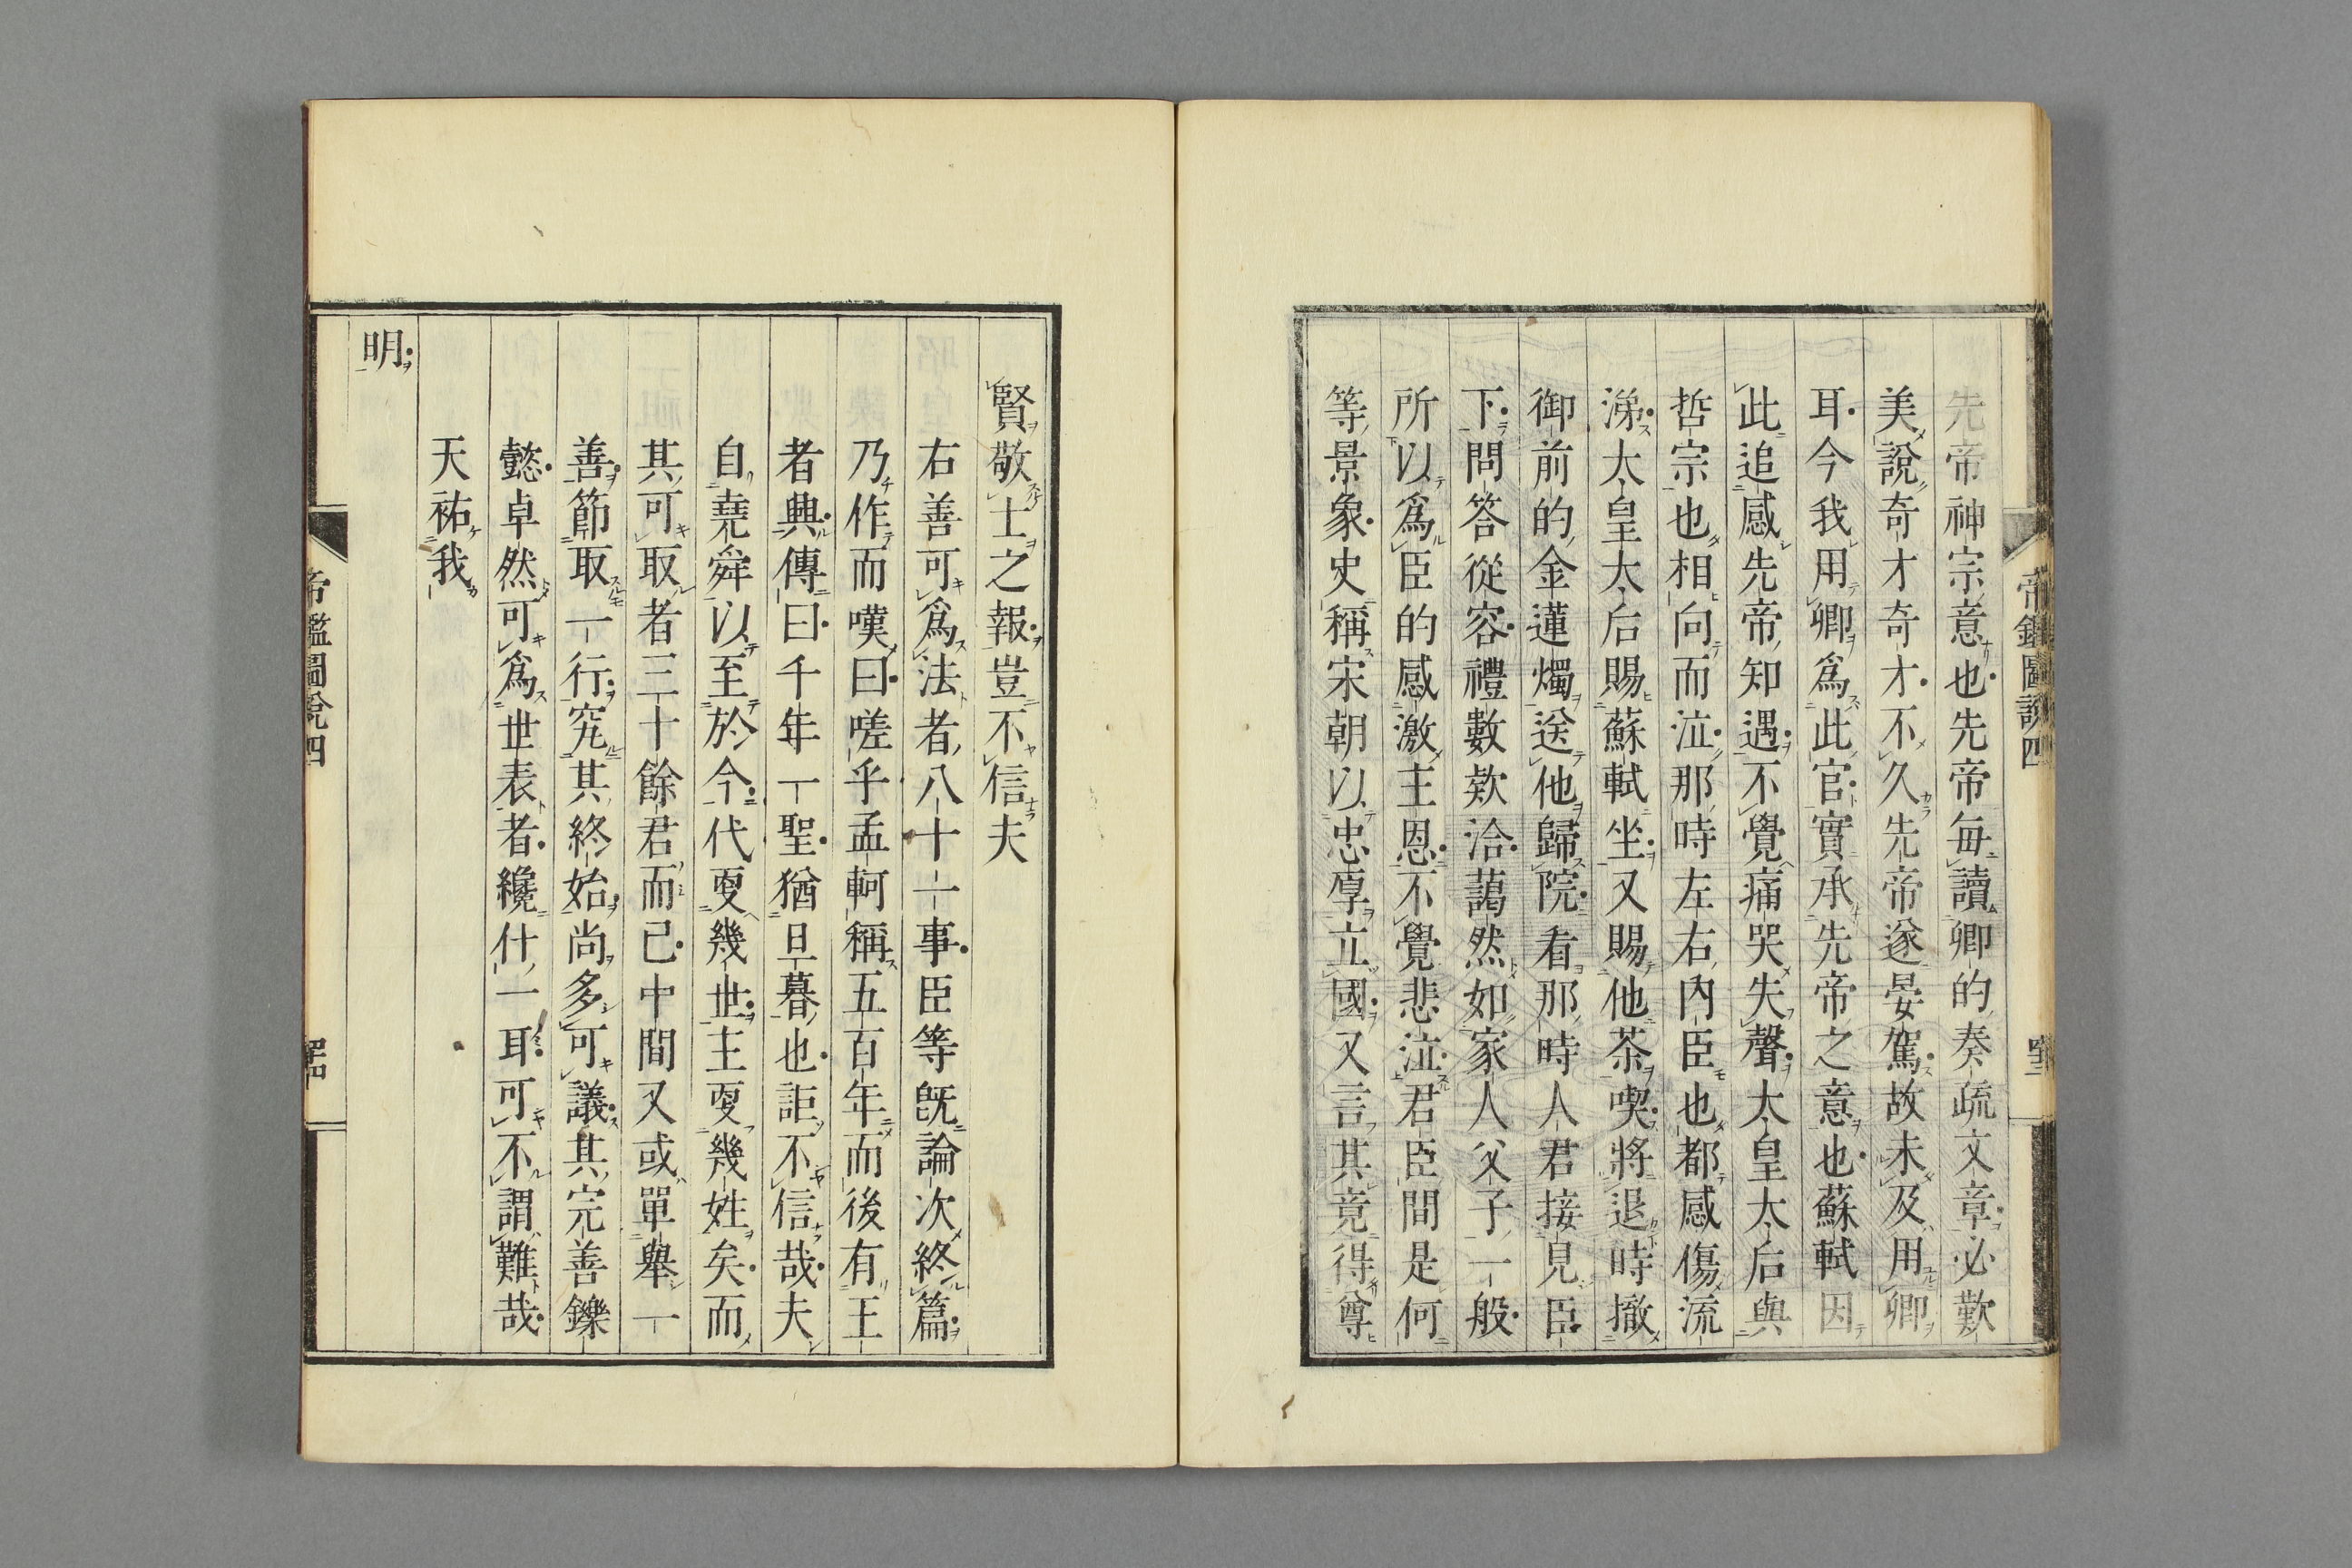 先帝神宗意也先帝每讀卿的奏疏文章必歎
美說奇才奇才不久先帝遂晏駕故未及用卿
耳今我用卿爲此官實承先帝之意也蘇軾因
此追感先帝知遇不覺痛哭失聲太皇太后與
哲宗也相向而泣那時左右內臣也都感傷流
涕太皇太后賜蘇軾坐又賜他茶喫將退時撤
御前的金蓮燭送他歸院看那時人君接見臣
下問答從容禮數欵洽藹然如家人父子一般
所以爲臣的感激主恩不覺悲泣君臣間是何
等景象史稱宋朝以忠厚立國又言其竟得尊
帝鑑圖說四
賢敬士之報豈不信夫
右善可爲法者八十一事臣等旣論次終篇
乃作而嘆曰嗟乎孟軻稱五百年而後有王
者興傳曰千年一聖猶旦暮也詎不信哉夫
自堯舜以至於今代更幾世主更幾姓矣而
其可取者三十餘君而已中間又或單舉一
善節取一行究其終始尚多可議其完善鑠
懿卓然可爲世表者纔什一耳可不謂難哉
天祐我
明
帝鑑圖說四